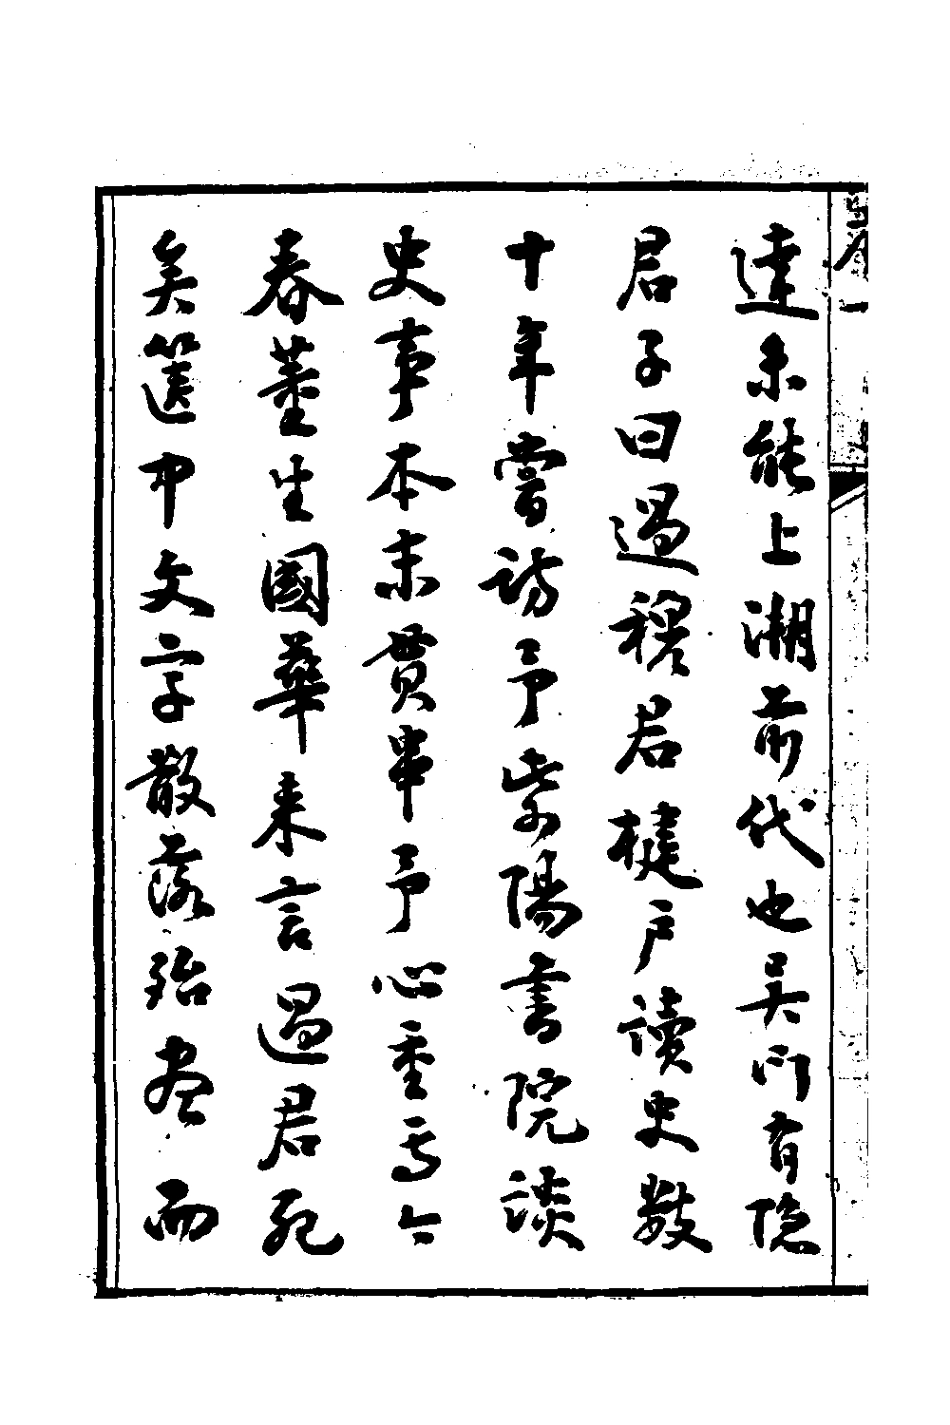 達未能上溯前代也吴門有隠
君子曰過穆君楗户讀史數
十年嘗訪予紫陽書院談
史事本末貫串予心重焉今
春董生國華来言過君死
矣箧中文字散落殆盡而